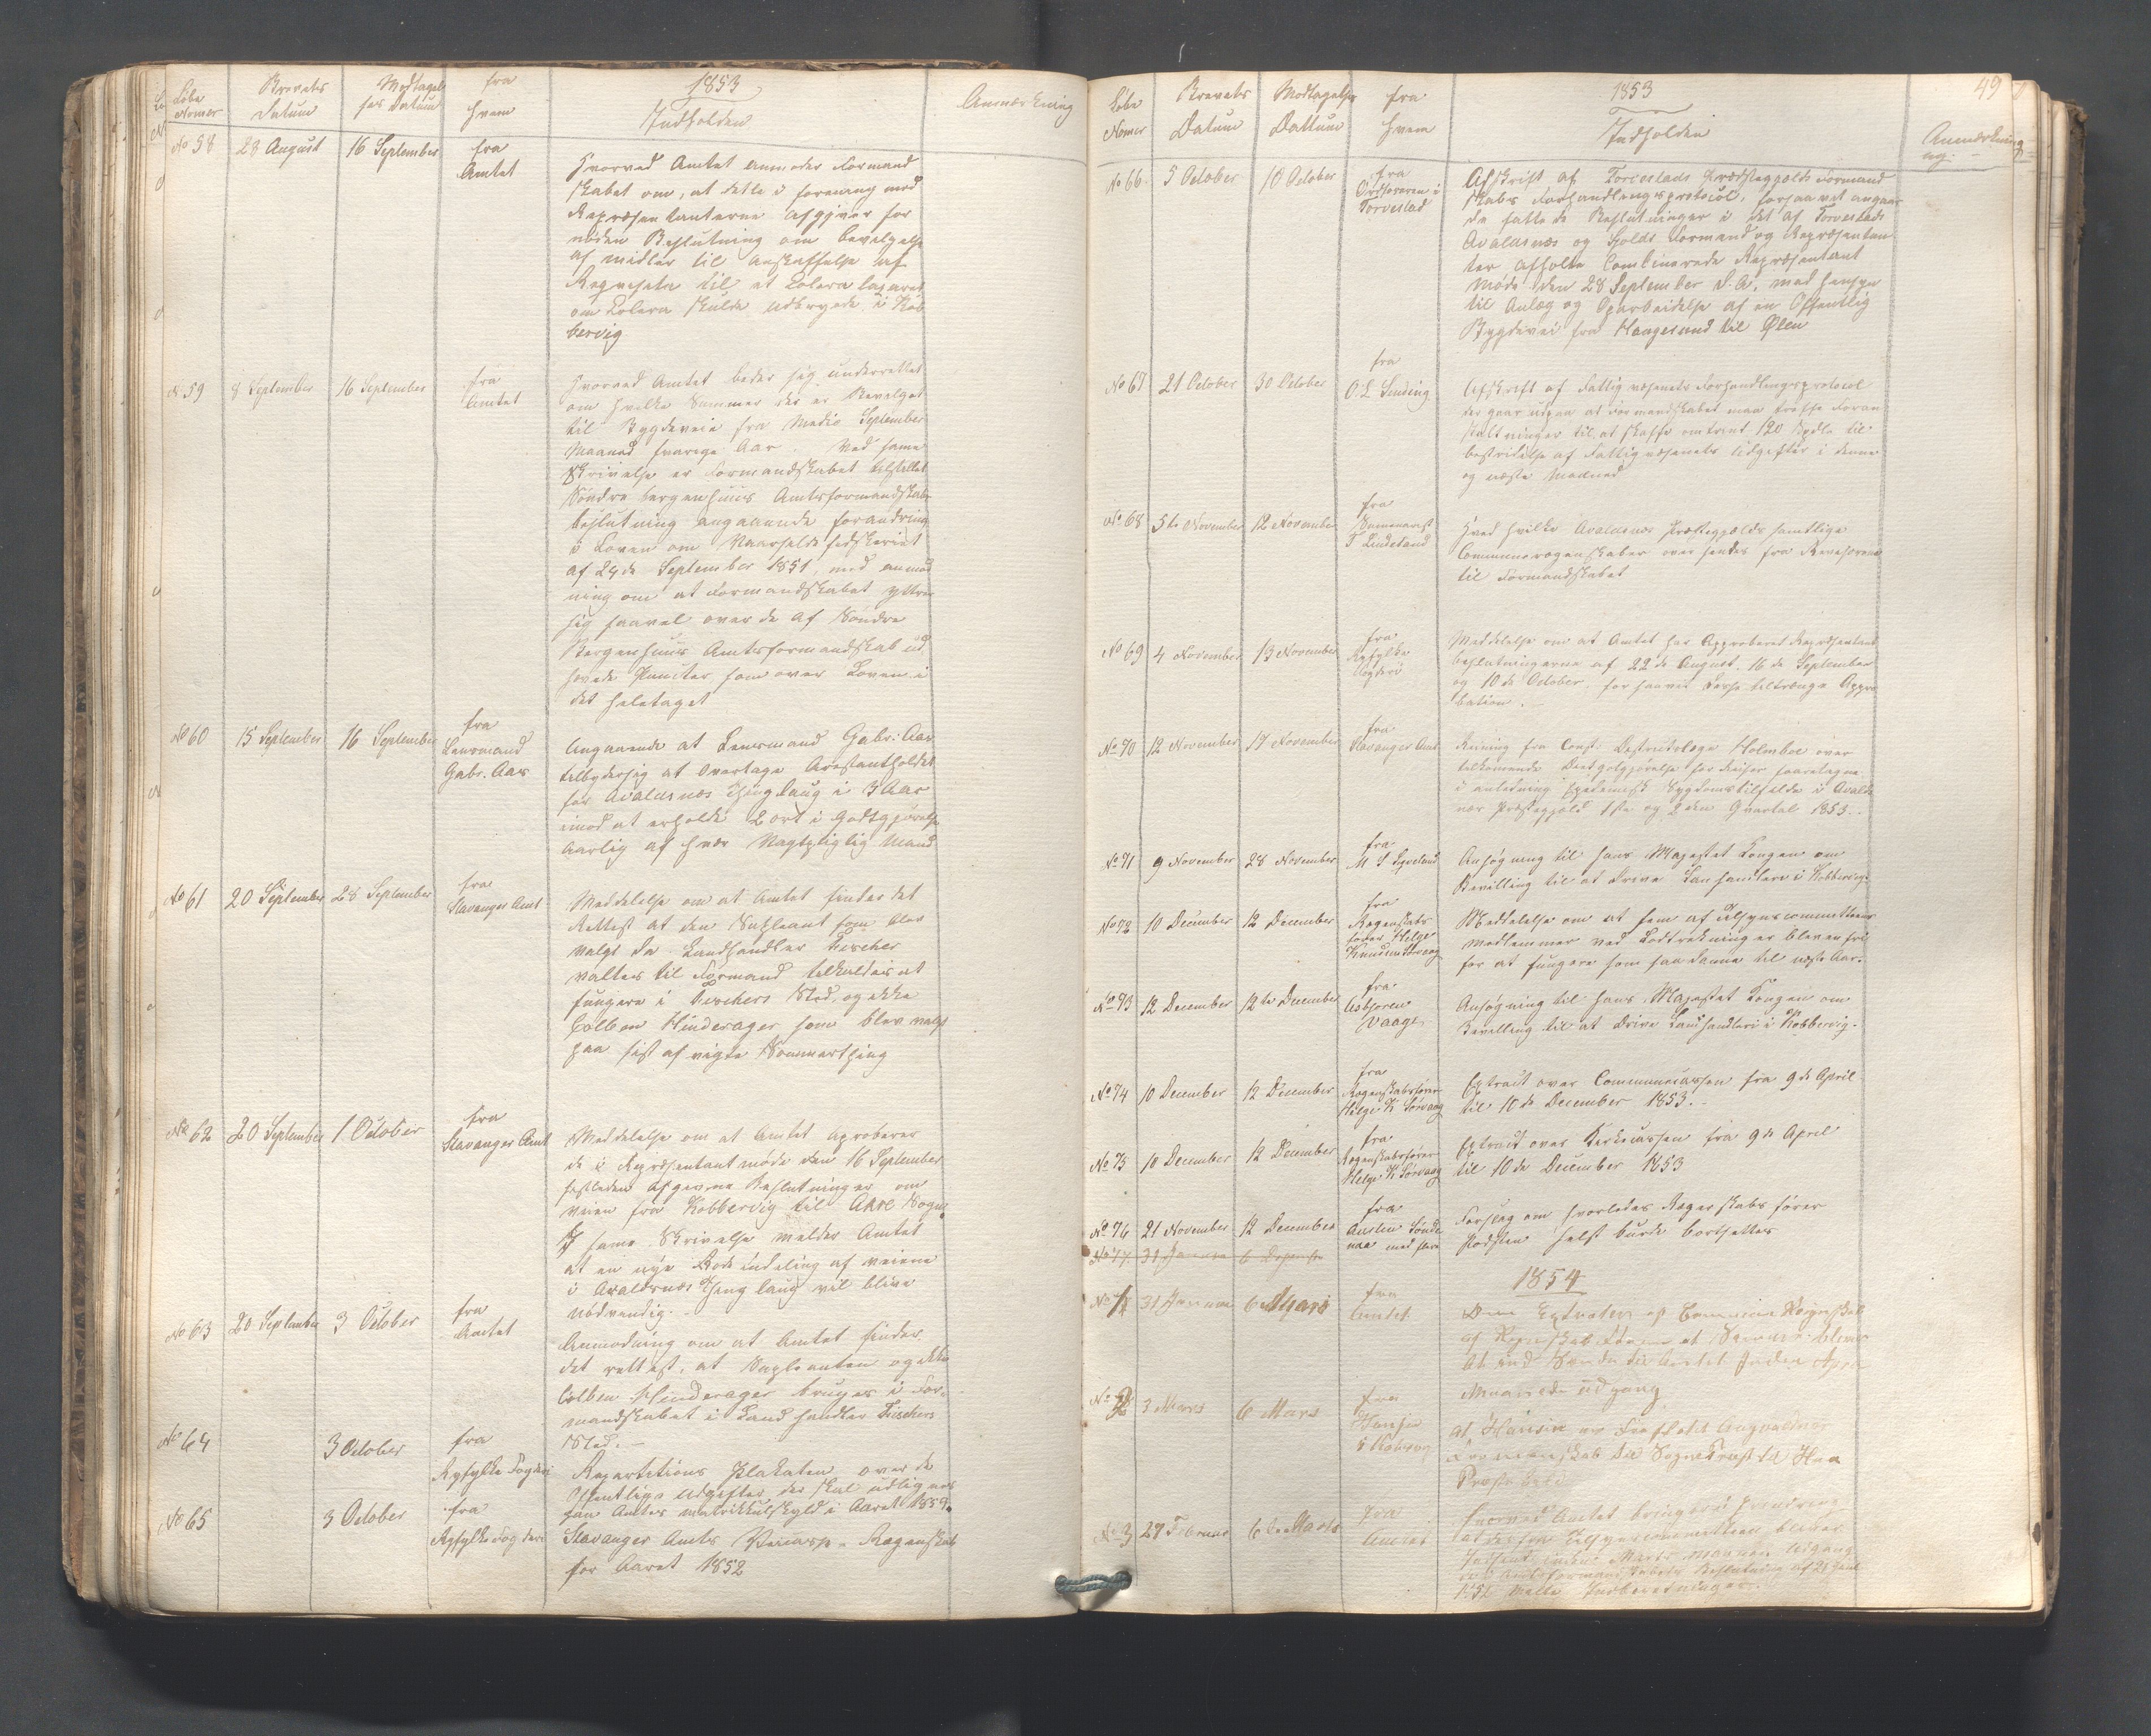 1853
Løbe Nomer
Brevets Datum
Modtagelses Datum
fra hvem
Indholden
Anmærkning
No 58
28 August
16 September
fra Amtet
Hvorved Amtet anmoder Formand
skabet om, at dette i forening med
Repræsentanterne afgiver for
nøden Beslutning om bevelgelse
af midler til anskaffelse af
Reqvisita til et Colera lazaret
om Colera skulde udbryde i Kob
bervig
No 59
8 September
16 September
fra Amtet
Hvorved Amtet beder sig underrettet
om hvilke Summer der er Bevelget
til Bygdeveie fra Medio September
Maaned forrige Aar. Ved same
Skrivelse er Formandskabet tilstillet
Søndre bergenhuus Amtsformandskabs
beslutning angaaende forandring
i Loven om Vaarsildefidskeriet
af 24de September 1851, med anmod
ning om at Formandskabet yttrer
sig saavel over de af Søndre
Bergenhuus Amtsformandskab ud
hævede Puncter som over Loven i
det heletaget
No 60
15 September
16 September
fra
Lensmand
Gabr. Aas
Angaaende at Lensmand Gabr: Aas
tilbyder sig at Overtage Arestantholdet
for Avaldsnæs Thinglaug i 3 Aar
imod at erholde 2 ort i Godtgjørelse
Aarlig af hver Vagtpligtig Mand
No 61
20 September
28 September
fra
Stavanger Amt
Meddelelse om at Amtet finder det
Rettest at den Supleant som blev
valgt da Landhandler Fischer
valtes til Formand tilkaldes at
fungere i Fischers Sted, og ikke
Colben Hinderager som blev valgt
paa sist afvigte Sommerthing
No 62
20 September
1 October
fra
Stavanger Amt
Meddelelse om at Amtet aproberer
de i Repræsentantmøde den 16 September
sistleden afgivne Beslutninger om
veien fra Kobbervig til Aare Sogn.
I same Skrivelse melder Amtet
at en nye Rodeindeling af veiene
i Avaldsnæs Thinglaug vil blive
nødvendig.
No 63
20 September
3 October
fra
Amtet
Anmodning om at Amtet finder
det rettest, at Supleanten og ikke
Colben Hinderager bruges i For-
mandskabet i Landhandler Fischers
Sted. -
No 64
3 October
fra
Ryfylke Fogderi
Repartitions Plakaten over de
Offentlige udgifter der skal udlignes
paa Amtets matrikkulskyld i Aaret 1854.
No 65
3 October
fra
Ryfylke Fogderi
Stavanger Amts Regenskab
for Aaret 1852
49
1853
Løbe Nomer
Brevets Datum
Modtagelses Dattum
fra hvem
Indholden
Anmærkning
No 66
5 October
10 October
fra
Ordføreren i
Torvestad
Afskrift af Torvestads Præstegjælds Formand
skabs Forhandlingsprotocol, forsaavidt angaar
de fattede Beslutninger i det af Torvestads
Avaldsnæs og Sjolds Formand og Repræsentan
ter afholte Combinerede Repræsentant
møde den 28 September d. A, med hensyn
til Anlæg og Oparbeidelse af en Offentlig
Bygdevei fra Haugesund til Ølen
No 67
21 October
30 October
fra
O. L. Sinding
Afskrift af Fattigvæsenets Forhandlingsprotocol
der gaar udpaa at Formandskabet maa træffe Foran
staltninger til at skaffe omtrent 120 Spdlr til
bestridelse af Fattigvæsenets udgifter i denne
og næste Maaned
No 68
5te November
12 November
fra
T Lindeland
Hved hvilke Avaldsnæs Præstegjælds samtlige
Communeregenskaber over sendes fra Revisorene
til Formandskabet
No 69
4 November
13 November
fra
Ryfylke
Fogderi
Meddelelse om at Amtet har Approberet Repræsentant
beslutningerne af 22de August, 16de September
og 10de October, forsaavidt disse tiltrænge Appro
bation. -
No 70
12 November
17 November
fra
Stavanger Amt
Reining fra Const: Destrictslæge Holmboe over
tilkomende Deetgotgjørelse for Reiser foretagne
i anledning Epedemisk Sygdomstilfælde i Avalds
næs Præstegjeld 1ste og 2den Qvartal 1853.
No 71
9 November
28 November
fra
M S Sysveland
Ansøgning til hans Majestet Kongen om
Bevilling til at Drive Lanhanleri i Kobbervig.
No 72
10 December
12 December
fra
Regenskabs
fører Helge
Knudsen Sørvaag
Meddelelse om at fem af tilsyns committeens
medlemmer ved Lodtrekninger bleven fri
for at fungere som saadanne til næste Aar.
No 73
12 December
12te December
fra
Asbjoren
Vaage
Ansøgning til hans Majestet Kongen om
Bevilling til at Drive Landhandleri i Kobbervig.
No 74
10 December
12 December
fra
Regenskabsfører
Helge K Sørvaag
Extract over Communecassen fra 9de April
til 10de December 1853. -
No 75
10 December
12 December
fra
Regenskabsfører
Helge K Sørvaag
Extract over Kirkecassen fra 9de April
til 10de December 1853
No 76
21 November
12 December
fra
med flere
Forslag om hvorledes Regenskabs fører
Posten helst burde bortsettes
No 77
31 Januar
1854
No 1
31 Januar
6 Mars
fra
Amtet
Maanede udgang
No 2
3 Mars
6 Mars
fra
Præste
No 3
27 Februar
6te Marts
fra
Amtet
Hvorved Amtet bringer i Erindring